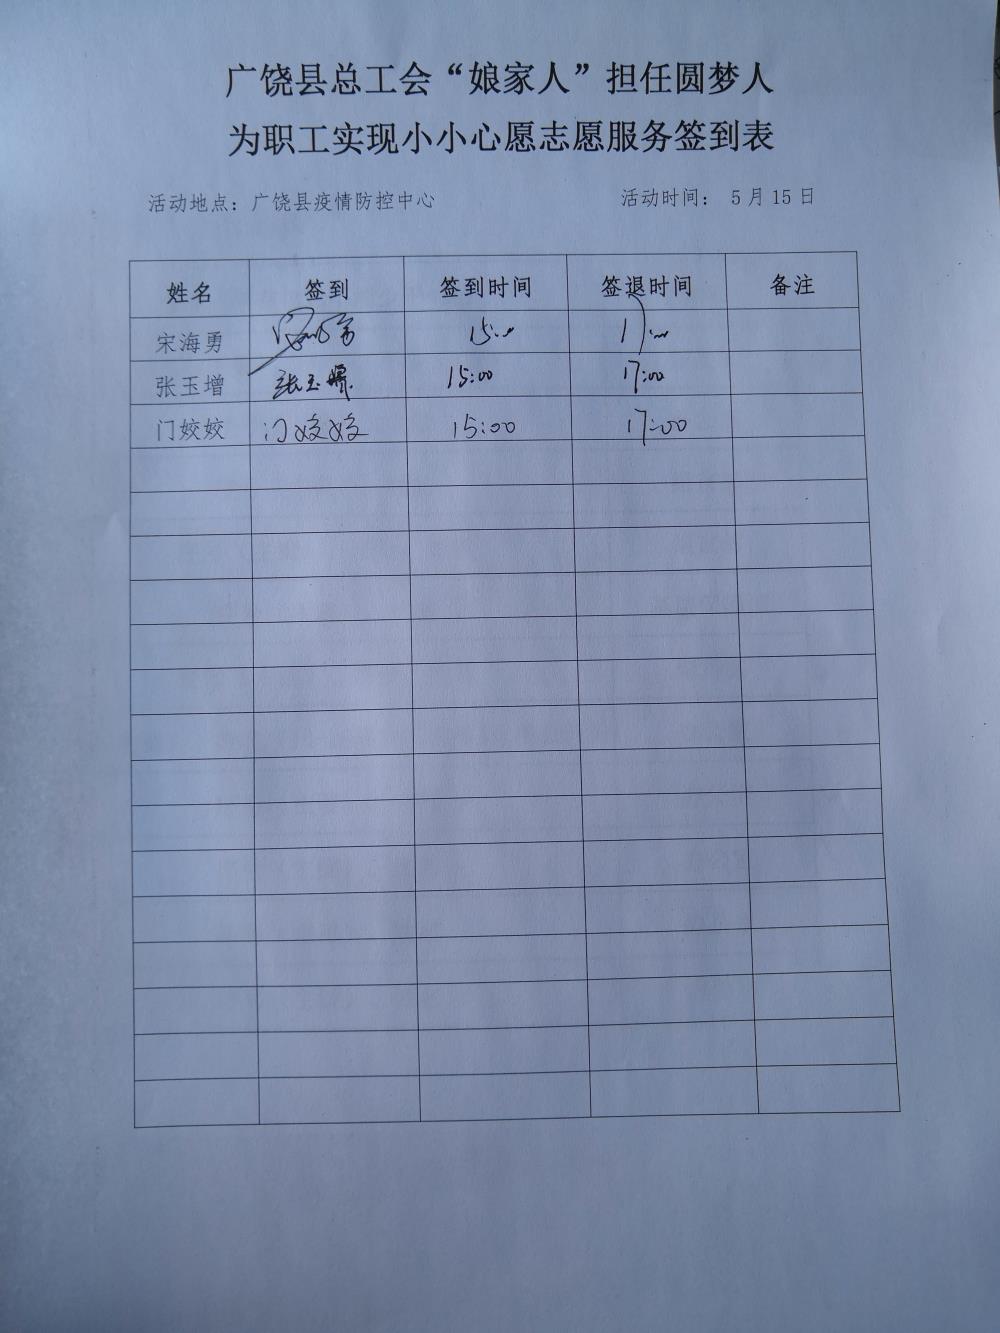 广饶县总工会“娘家人”担任圆梦人
为职工实现小小心愿志愿服务签到表
活动地点：广饶县疫情防控中心 活动时间： 5月15日
姓名 签到 签到时间 签退时间 备注
宋海勇 15:00 17:00
张玉增 张玉增 15:00 17:00
门姣姣 门姣姣 15:00 17:00